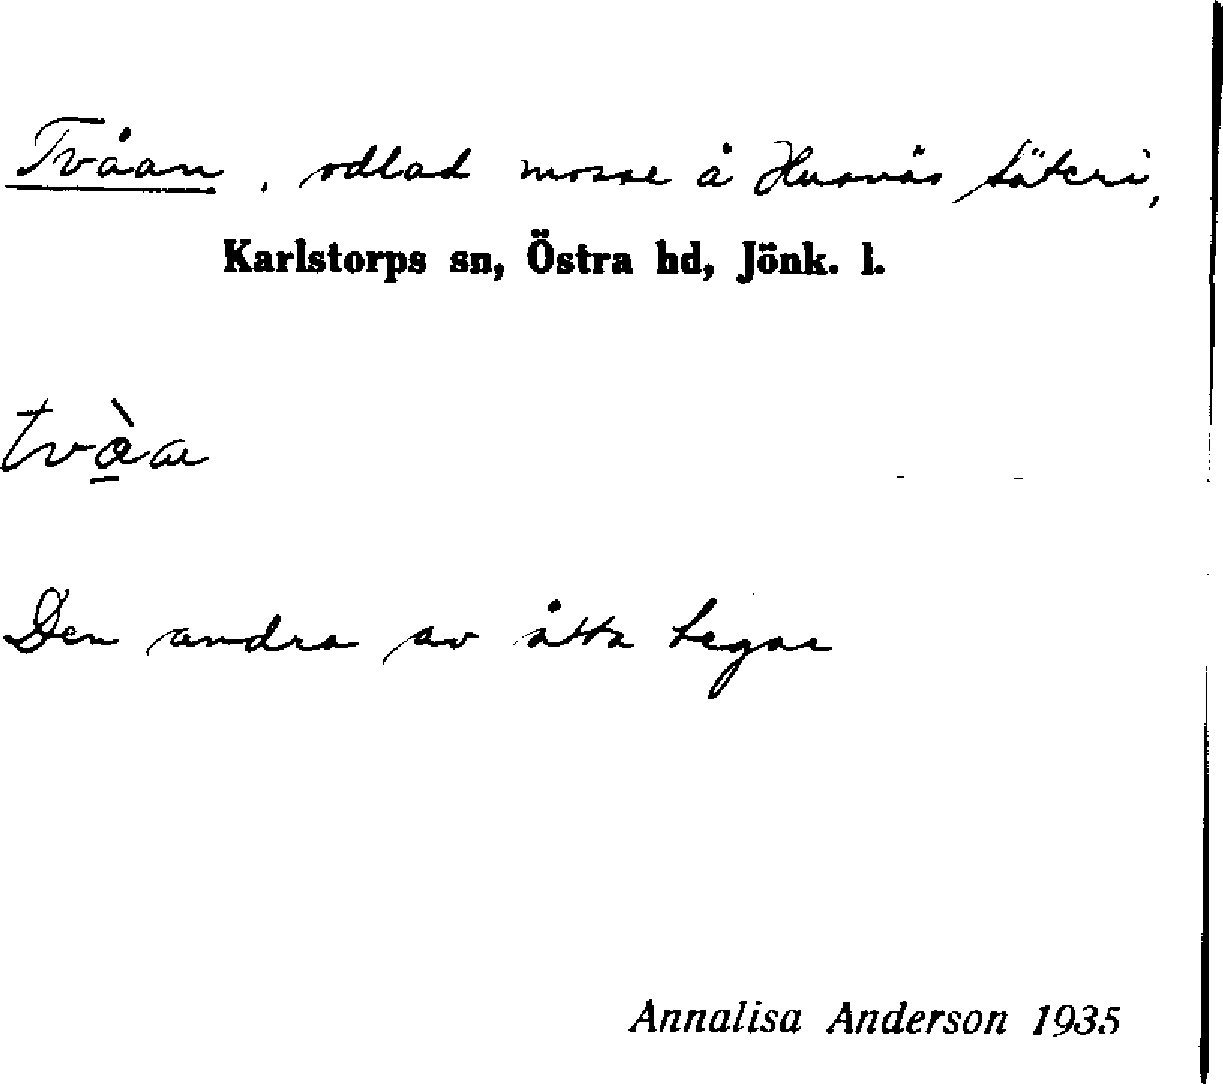 Tvåan, odlad mosse å Husnäs säteri,
Karlstorps sn, Östra hd, Jönk. l.
Den andra av åtta tegar
Annalisa Anderson 1935